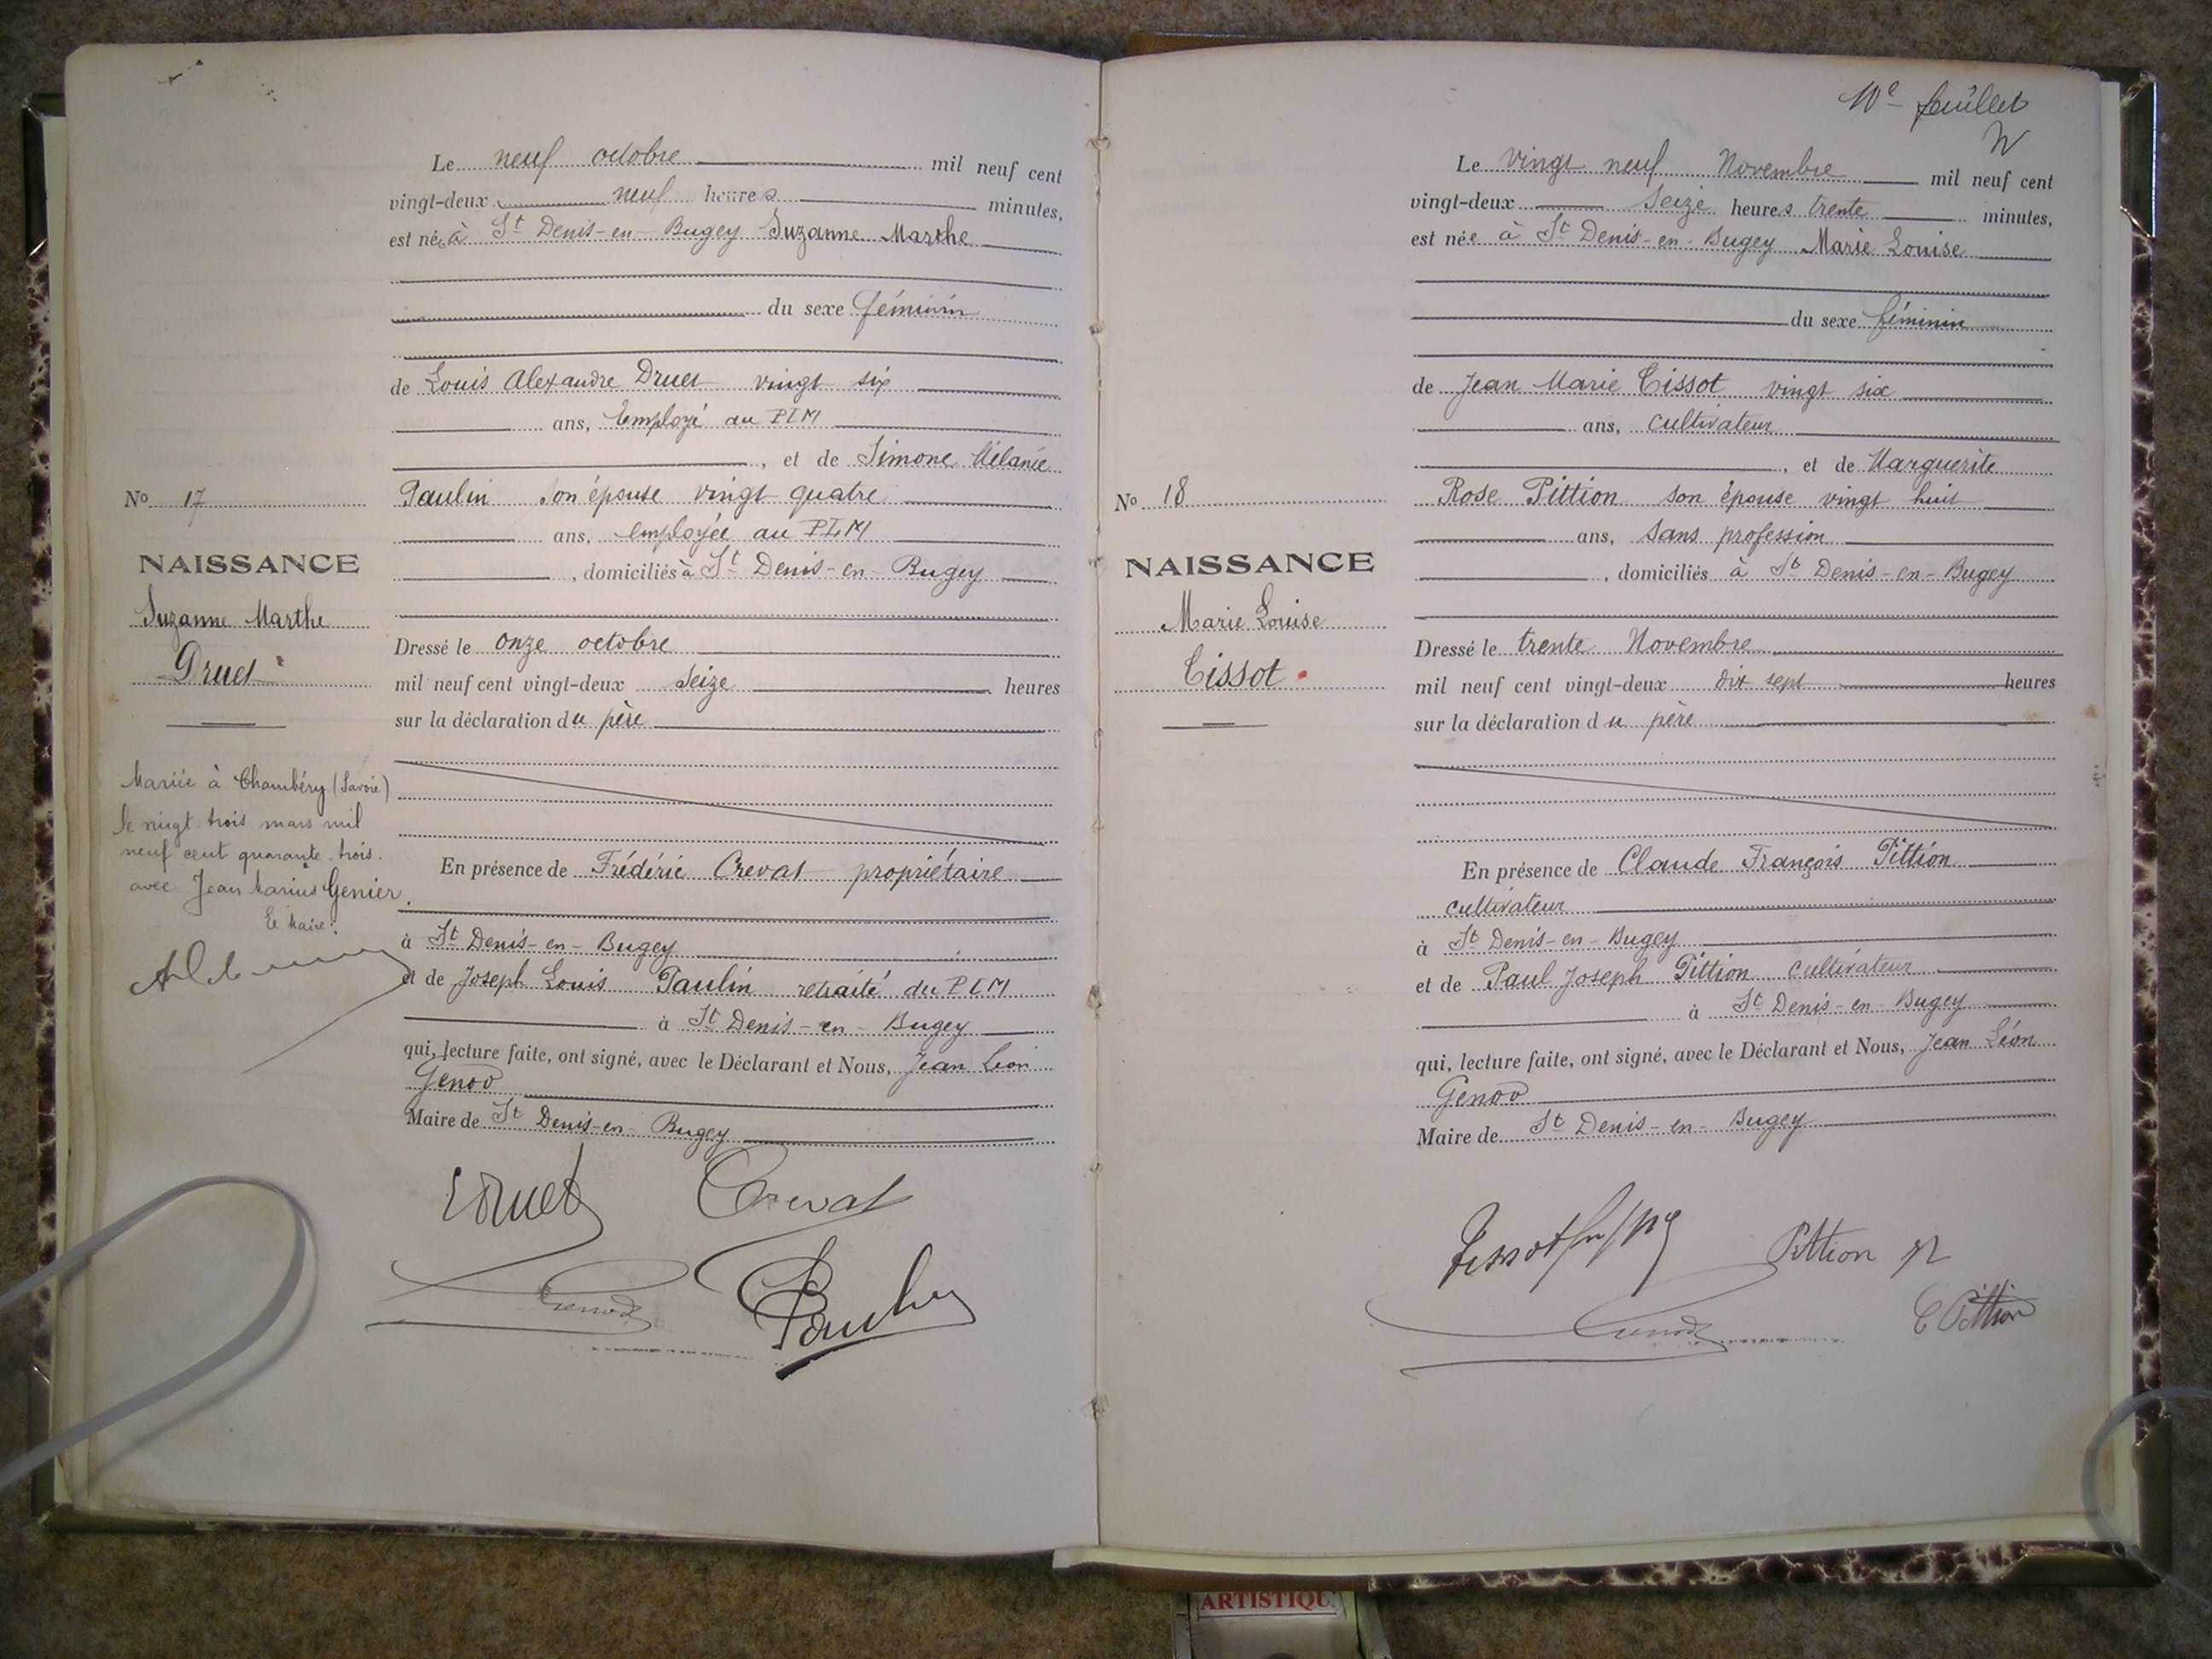 Le neuf octobre mil neuf cent
vingt-deux neuf heures minutes,
est née à St Denis-en-Bugey Suzanne Marthe
du sexe féminin
de Louis Alexandre Druet vingt six
ans, Employé au PLM
, et de Simone Mélanie
Paulin son épouse vingt quatre
ans, employée au PLM
, domiciliés à St Denis-en-Bugey
Dressé le onze octobre
mil neuf cent vingt-deux seize heures
sur la déclaration du père
En présence de Frédéric Crevat propriétaire
à St Denis-en-Bugey
et de Joseph Louis Paulin retraité du PLM
à St Denis-en-Bugey
qui, lecture faite, ont signé, avec le Déclarant et Nous, Jean Léon
Genod
Maire de St Denis-en-Bugey
Druet Crevat
Genod Paulin
No 17
NAISSANCE
Suzanne Marthe
Druet
Mariée à Chambéry (Savoie)
le vingt trois mars mil
neuf cent quarante-trois.
avec Jean Marius Genier.
Le Maire:
10e feuillet
Le vingt neuf Novembre mil neuf cent
vingt-deux Seize heures trente minutes,
est née à St Denis-en-Bugey Marie Louise
du sexe féminin
de Jean Marie Tissot vingt six
ans, cultivateur
, et de Marguerite
Rose Pittion son épouse vingt huit
ans, sans profession
, domiciliés à St Denis-en-Bugey
Dressé le trente Novembre
mil neuf cent vingt-deux dix sept heures
sur la déclaration du père
En présence de Claude François Pittion
cultivateur
à St Denis-en-Bugey
et de Paul Joseph Pittion cultivateur
à St Denis-en-Bugey
qui, lecture faite, ont signé, avec le Déclarant et Nous, Jean Léon
Genod
Maire de St Denis-en-Bugey
Tissot Pittion
Genod C Pittion
No 18
NAISSANCE
Marie Louise
Tissot
ARTISTIQU